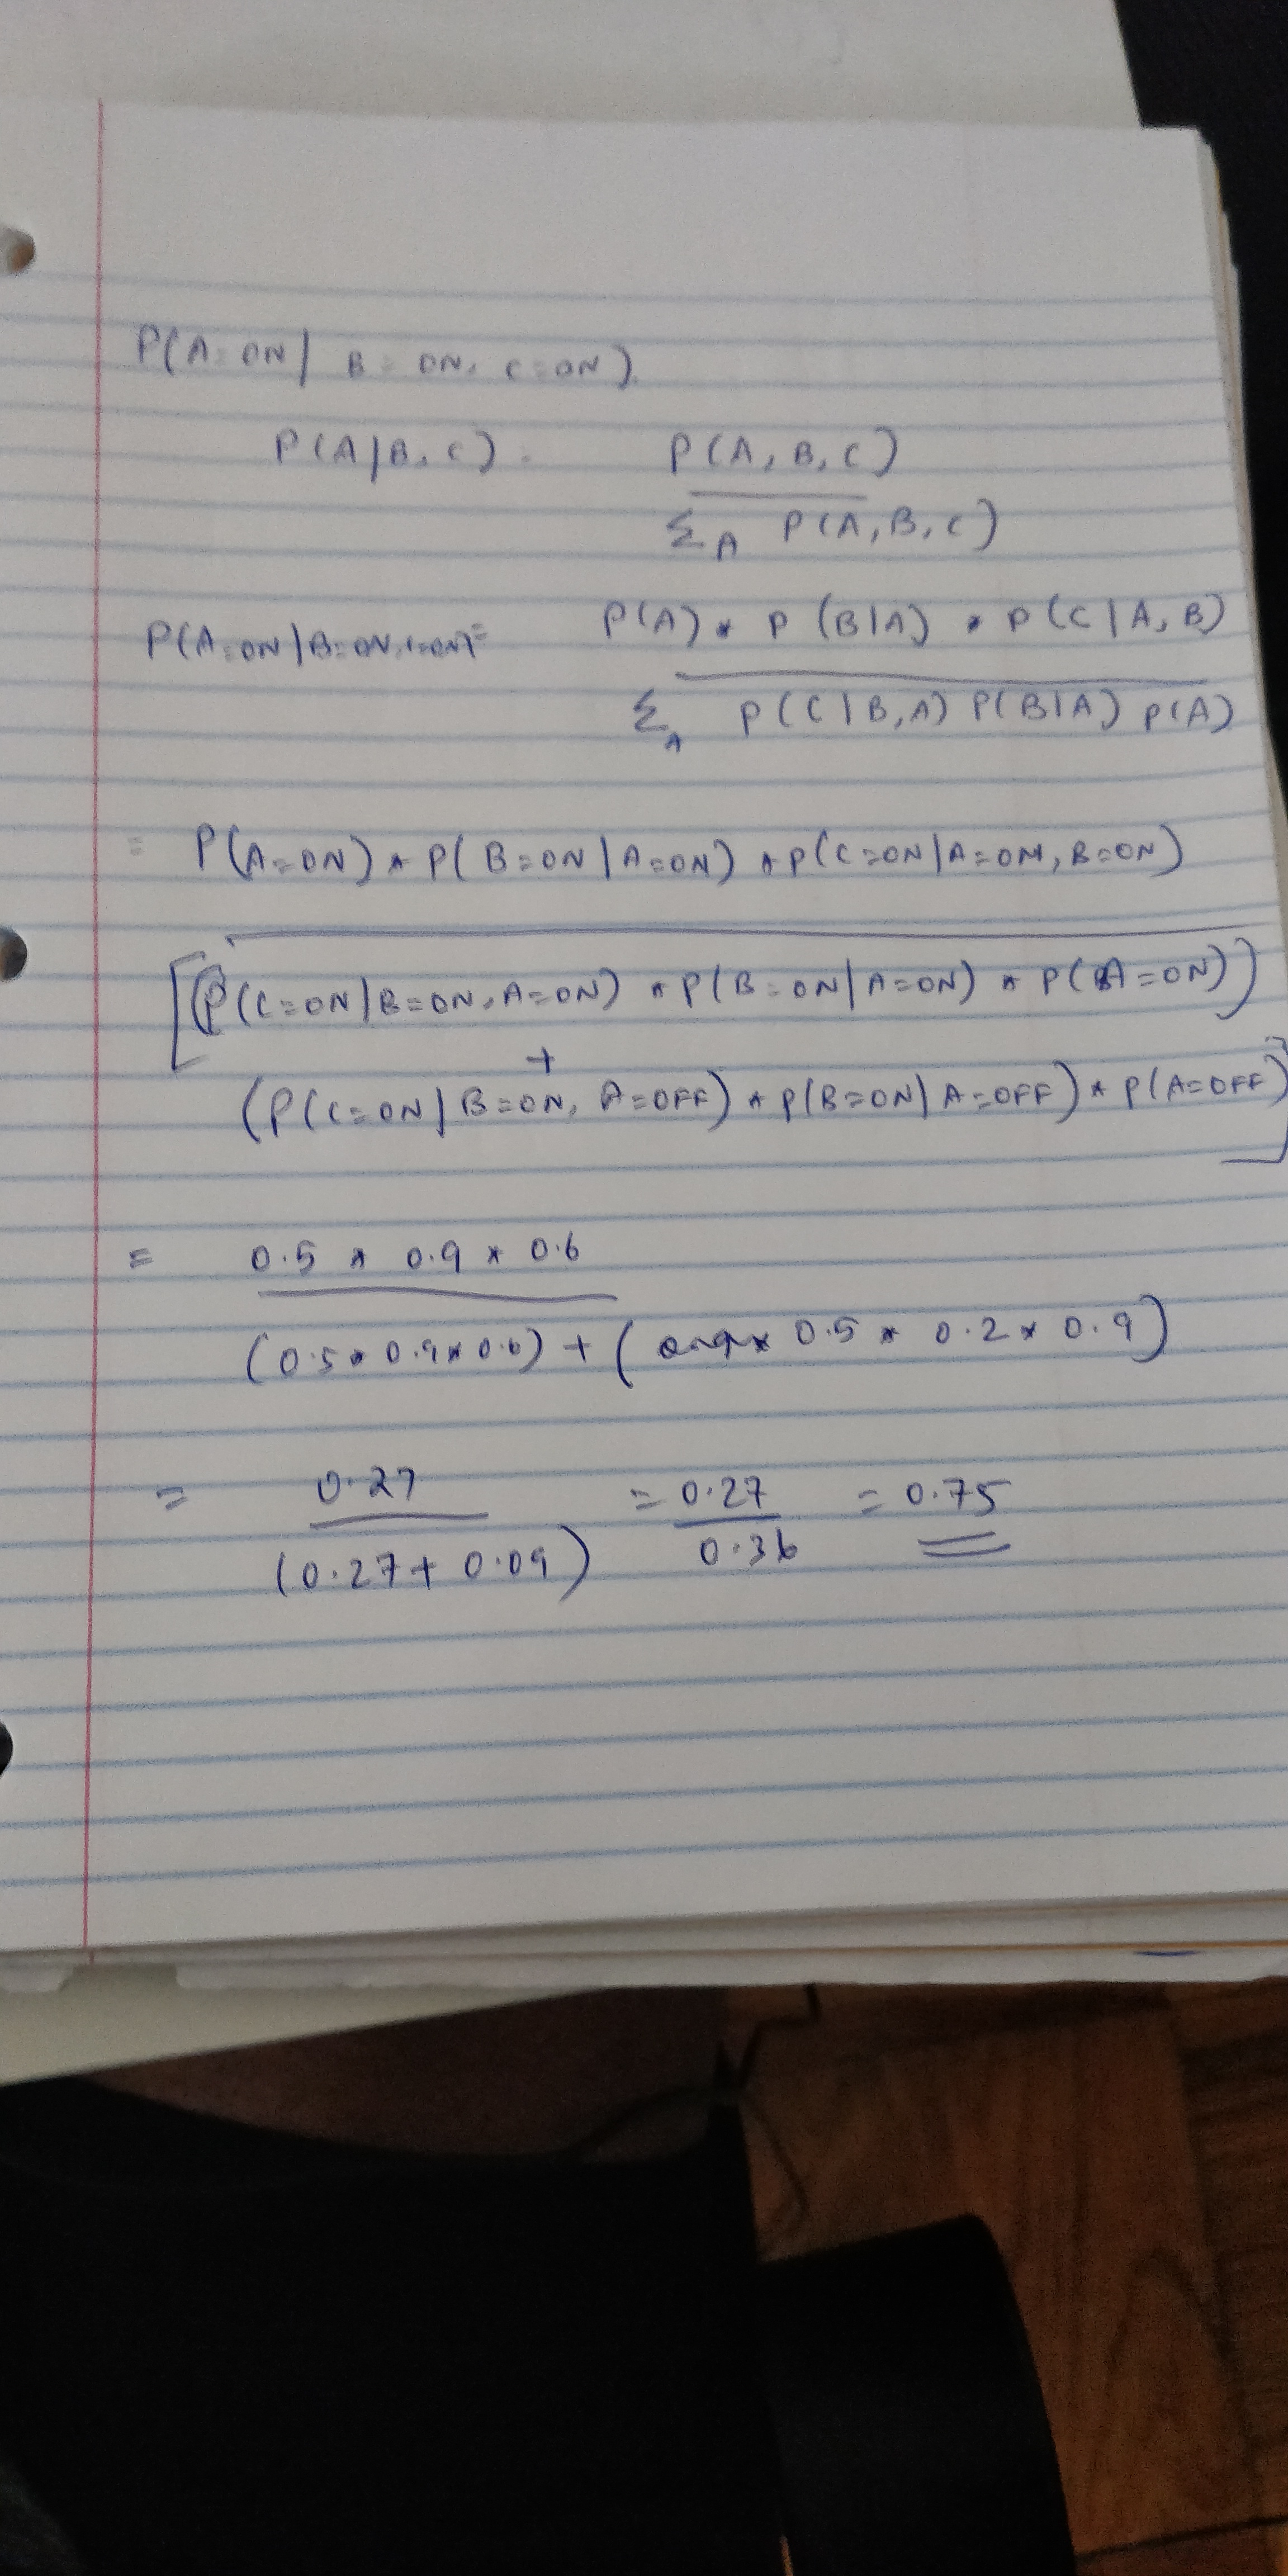 P(A=ON | B=ON, C=ON).
P(A|B,C) = P(A,B,C)
Σ_A P(A,B,C)
P(A=ON|B=ON,C=ON)= P(A) * P(B|A) * P(C|A,B)
Σ_A P(C|B,A) P(B|A) P(A)
= P(A=ON) * P(B=ON|A=ON) * P(C=ON|A=ON, B=ON)
[(P(C=ON|B=ON, A=ON) * P(B=ON|A=ON) * P(A=ON))
+
(P(C=ON|B=ON, A=OFF) * P(B=ON|A=OFF) * P(A=OFF)]
= 0.5 * 0.9 * 0.6
(0.5 * 0.9 * 0.6) + ( 0.5 * 0.2 * 0.9)
= 0.27 = 0.27 = 0.75
(0.27 + 0.09) 0.36